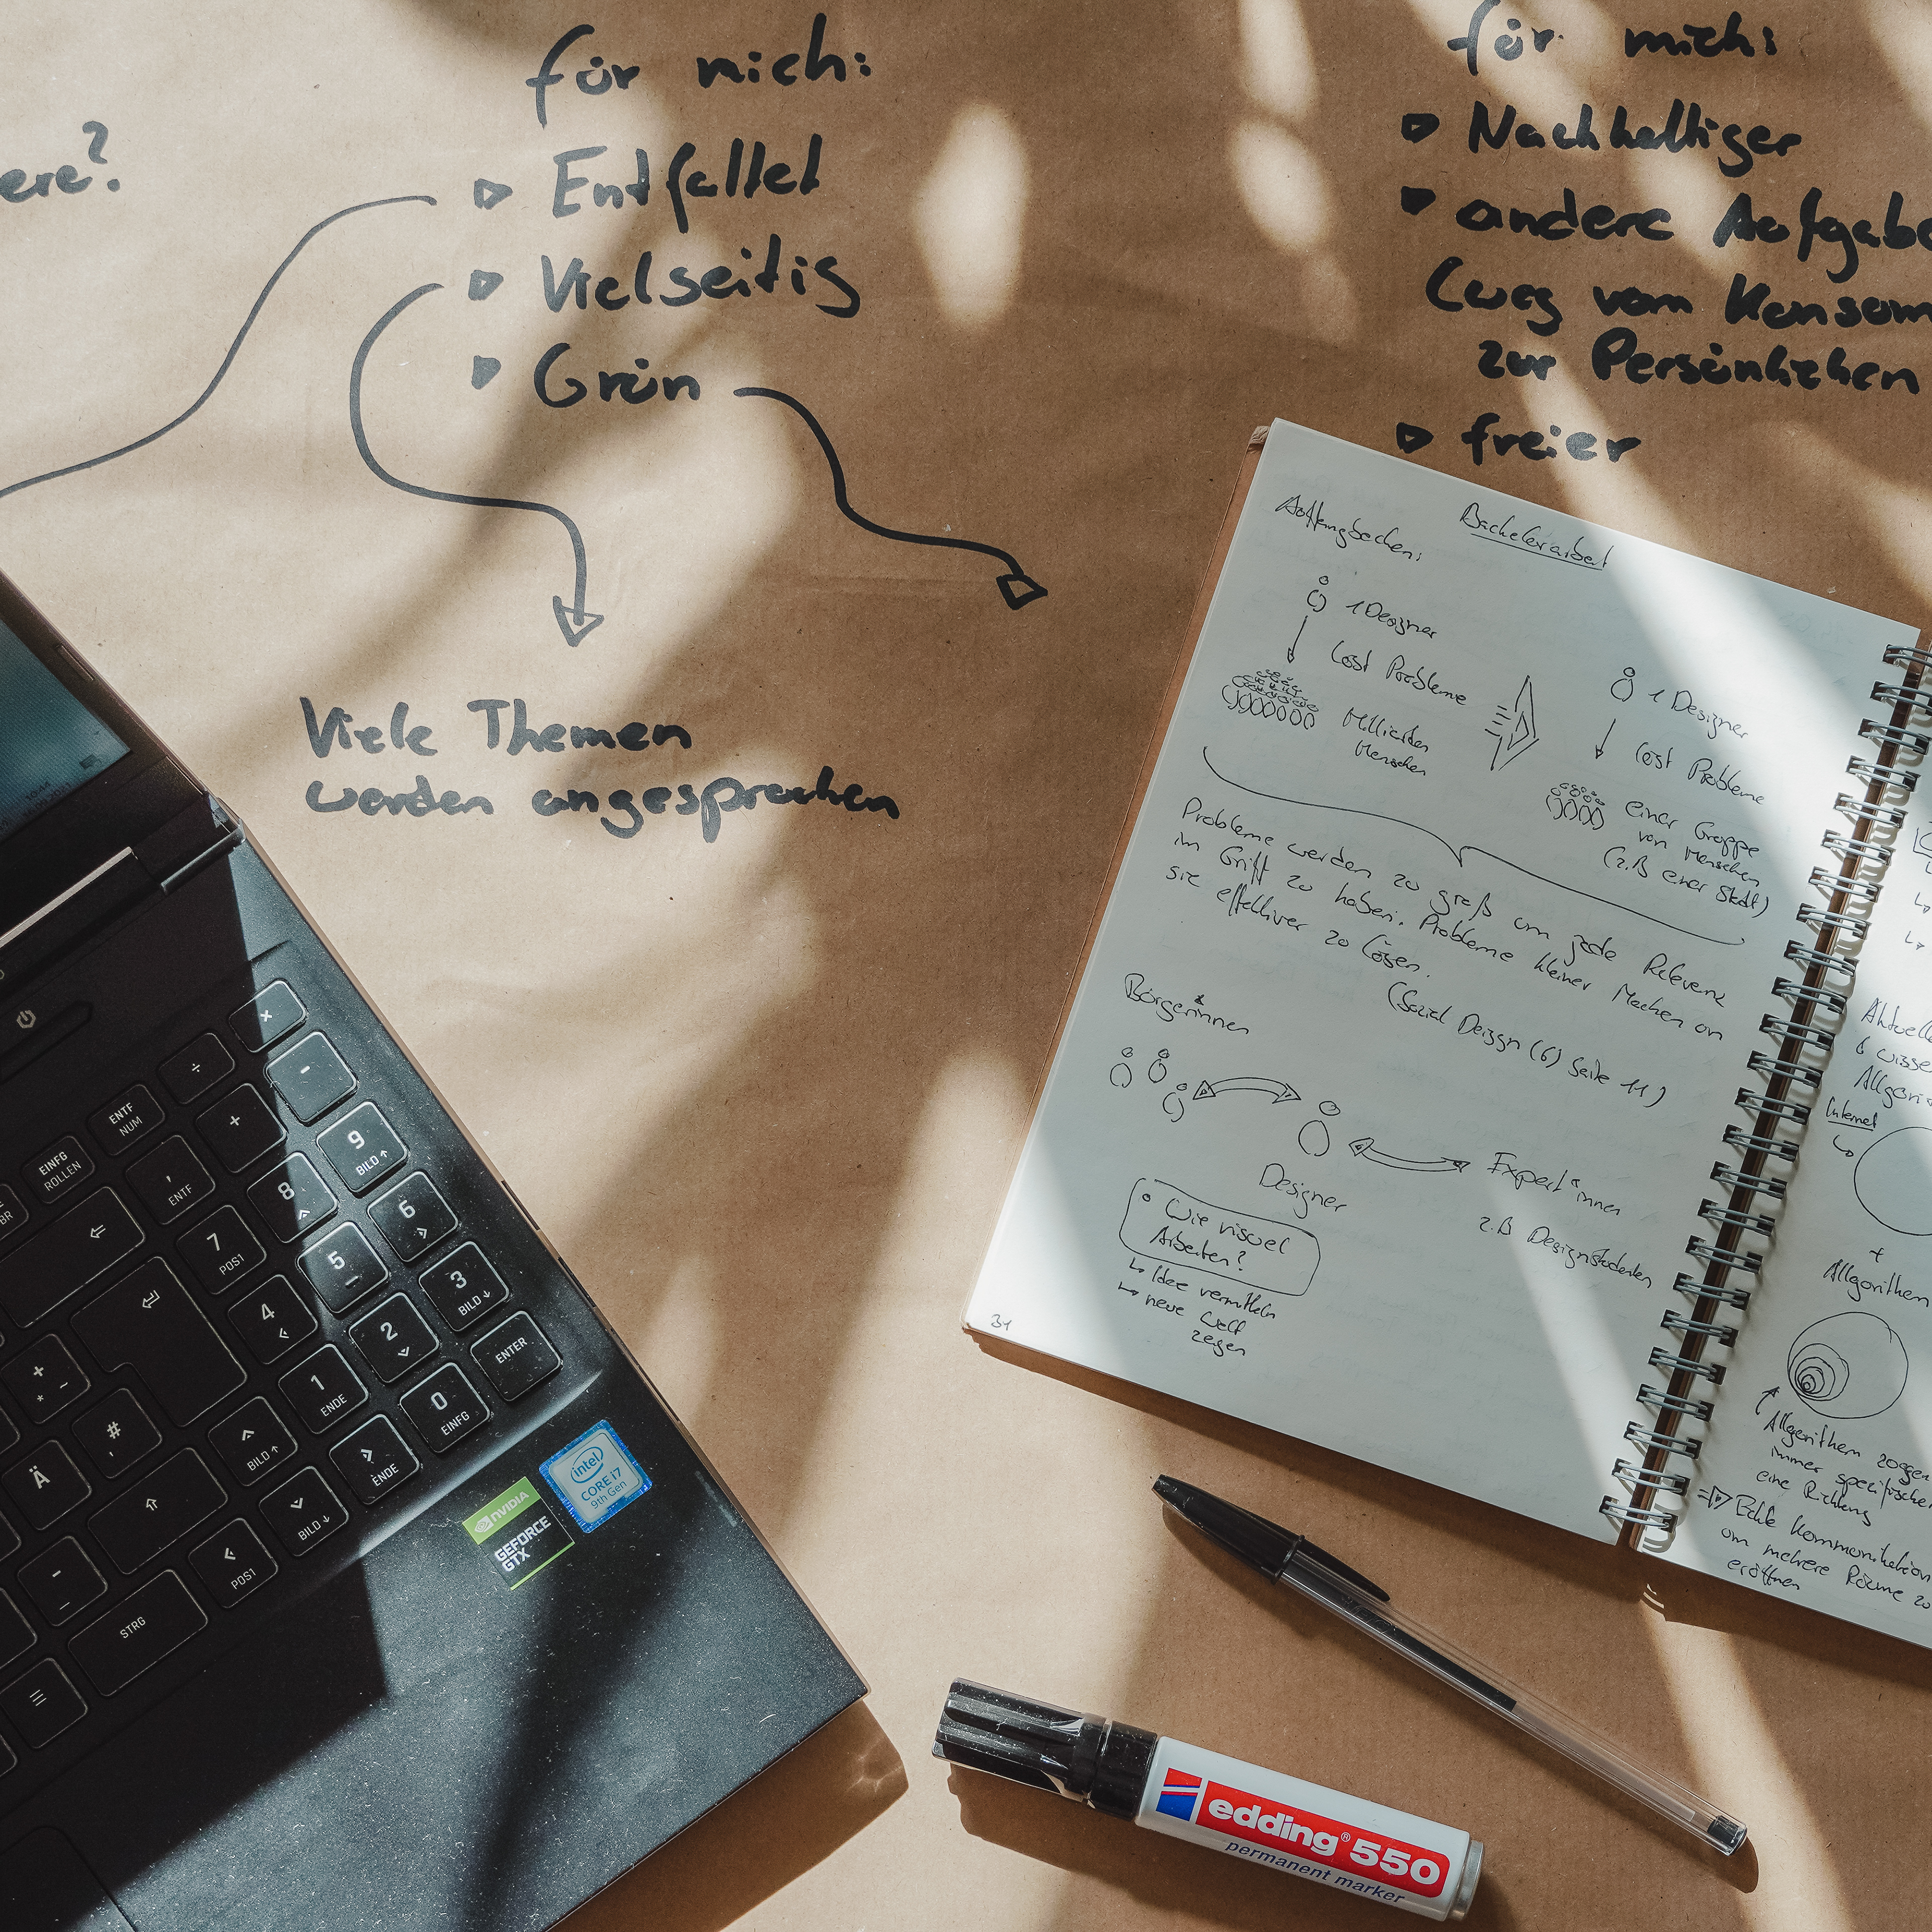 ere?
für mich:
Entfaltet
Vielseitig
Grün
Viele Themen
werden angesprochen
für mich:
Nachhaltiger
andere Aufgabe
(weg vom Konsum
zur Persönlichen
freier
Bachelorarbeit
1 Designer
löst Probleme
Milliarden
Menschen
1 Designer
löst Probleme
einer Gruppe
von Menschen
(z.B einer Stadt)
Probleme werden zu groß um jede Relevanz
im Griff zu haben. Probleme kleiner Machen um
sie effektiver zu lösen.
(Sozial Deisgn (6) Seite 11)
Bürger*innen
Designer
Expert*innen
z.B Designstudenten
Wie visuel
Arbeiten?
↳ Idee vermitteln
↳ neue Welt
zeigen
31
Aktuelle
wisse
Algori
Internet
+
Allgorithmen
Allgorithmen
immer spezifischer
eine Richtung
⇒ Echte Kommunikation
um mehrere Räume zu
eröffnen
×
÷
-
ENTF
NUM
+
9
BILD ↑
EINFG
ROLLEN
,
ENTF
8
6
7
POS1
5
3
BILD ↓
4
2
ENTER
+
* ~
1
ENDE
0
EINFG
#
'
Ä
BILD ↑
ENDE
BILD ↓
-
_
POS1
STRG
intel
CORE i7
9th Gen
NVIDIA
GEFORCE
GTX
edding® 550
permanent marker